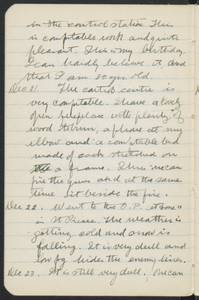 in the control station This
is comfortable work and quite
pleasant. This is my birthday.
I can hardly believe it and
that I am 30 yrs. old.
Dec 21. The control centre is
very comfortable. I have a lovely
open fireplace with plenty of
wood to burn, a phone at my
elbow and a comfortable bed
made of sack stretched on
a frame. I
fire the guns and at the same
time sit beside the fire.
Dec 22. Went to the O.P.
in St Pierre. The weather is
getting cold and snow is
falling. It is very dull and
low fog hides the enemy lines.
Dec 23. It is still very dull. We can